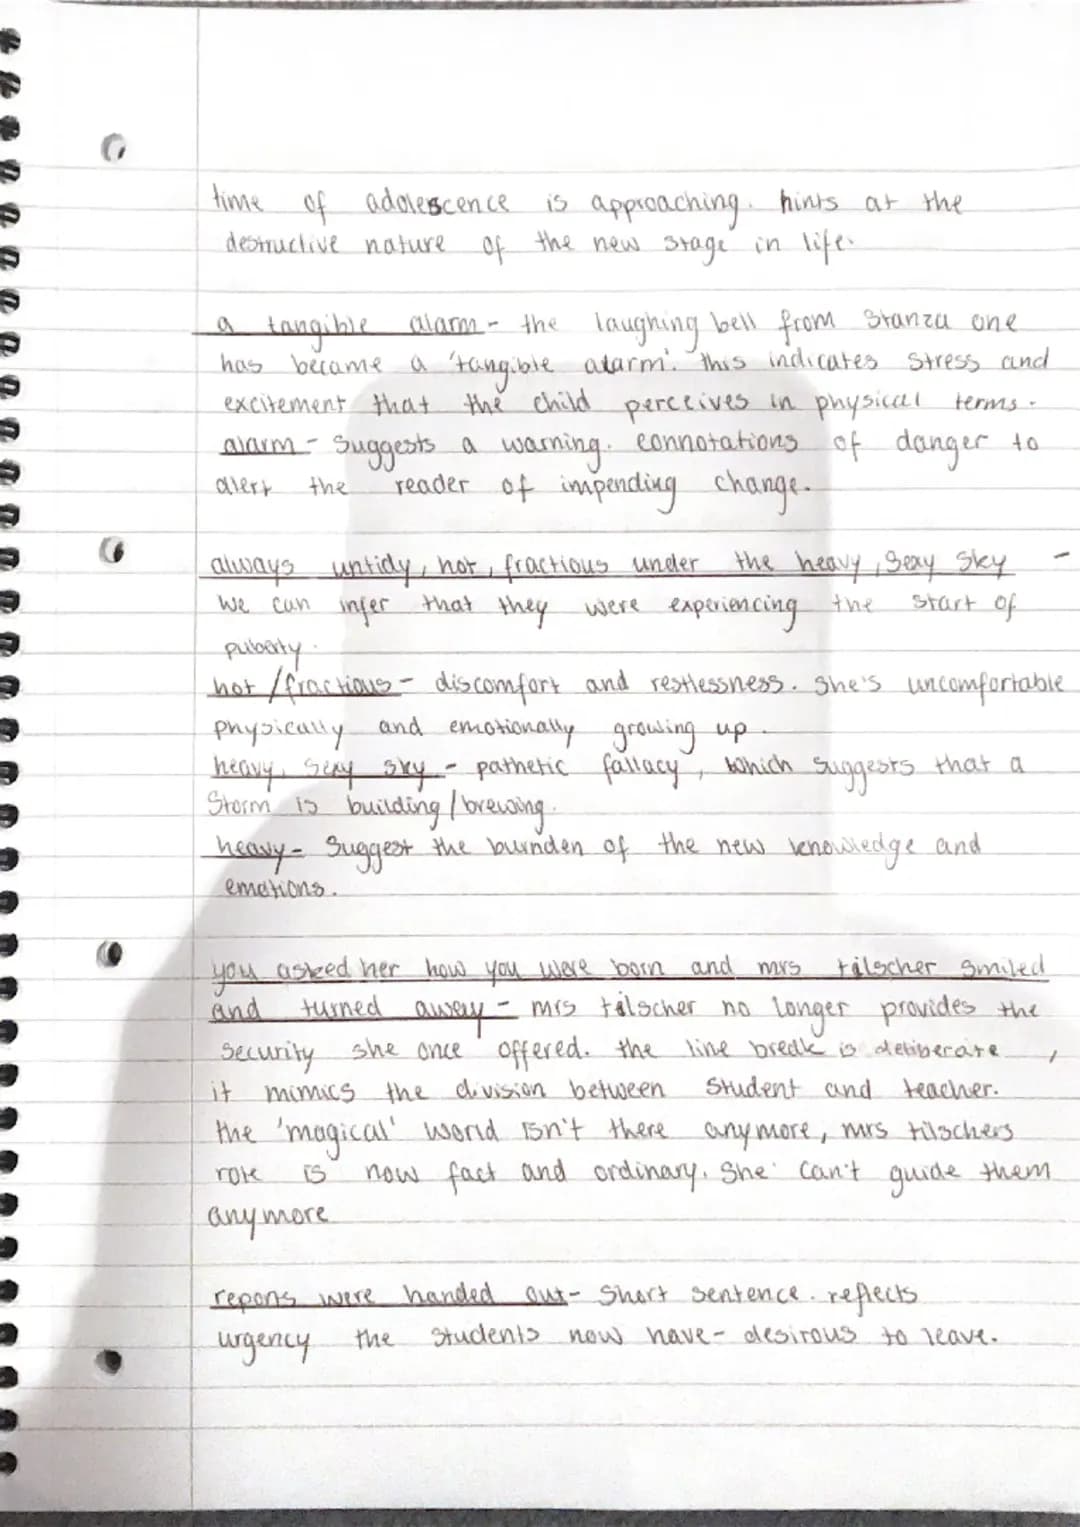 time of adolescence is approaching. hints at the
destructive nature of the new stage in life.
a tangible alarm - the laughing bell from Stanza one
has became a 'tangible alarm'. this indicates stress and
excitement that the child perceives in physical terms.
alarm - Suggests a warning. connotations of danger to
alert the reader of impending change.
always untidy, hot, fractious under the heavy, sexy sky -
we can infer that they were experiencing the start of
puberty.
hot / fractious - discomfort and restlessness. She's uncomfortable
physically and emotionally growing up.
heavy, sexy sky - pathetic fallacy, which suggests that a
Storm is building / brewing.
heavy - Suggest the burnden of the new knowledge and
emotions.
you asked her how you were born and mrs tilscher smiled
and turned away - mrs tilscher no longer provides the
security she once offered. the line break is deliberate,
it mimics the division between student and teacher.
the 'magical' world isn't there anymore, mrs tilschers
role is now fact and ordinary. She can't guide them
anymore
reports were handed out - Short sentence. reflects
urgency the students now have - desirous to leave.